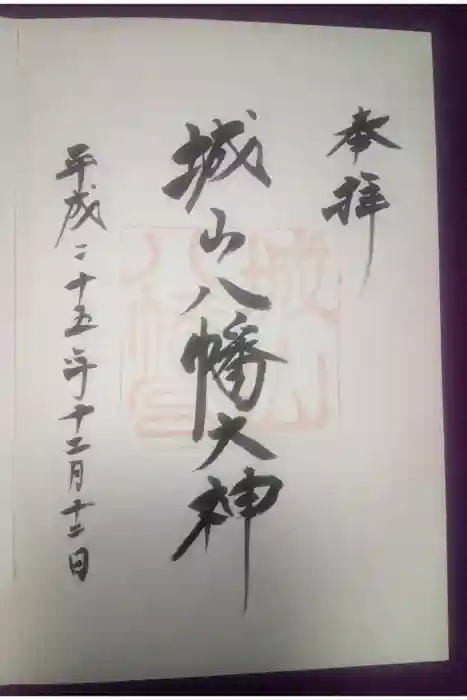 奉拝
城山八幡大神
平成二十五年十二月十二日
城山八幡宮